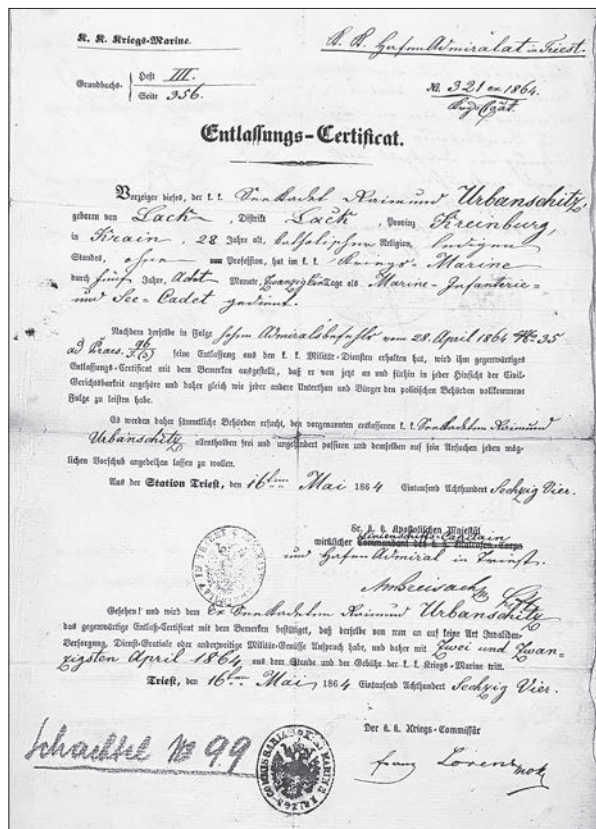 K. K. Kriegs-Marine.
K. K. Hafen Admiralat in Triest.
Grundbuchs-
Heft III.
Seite 356.
№ 321 ex 1864.
Entlassungs-Certificat.
Vorzeiger dieses, der k. k. Seekadet Raimund Urbanschitz,
geboren von Lack, Distrikt Lack, Provinz Kreinburg,
in Krain, 28 Jahre alt, katholischer Religion, ledigen
Standes, ohne Profession, hat im k. k. Kriegs-Marine
durch fünf Jahre, Acht Monate, Zwanzig Ein Tage als Marine-Infanterie-
und See-Cadet gedient.
Nachdem derselbe in Folge hohen Admiralsbefehls vom 28. April 1864 № 35
ad Praes. seine Entlassung aus den k. k. Militär-Diensten erhalten hat, wird ihm gegenwärtiges
Entlassungs-Certificat mit dem Bemerken ausgestellt, daß er von jetzt an und fürhin in jeder Hinsicht der Civil-
Gerichtsbarkeit angehöre und daher gleich wie jeder andere Unterthan und Bürger den politischen Behörden vollkommene
Folge zu leisten habe.
Es werden daher sämmtliche Behörden ersucht, den vorgenannten entlassenen k. k. Seekadeten Raimund
Urbanschitz allenthalben frei und ungehindert passiren und demselben auf sein Ansuchen jeden mög-
lichen Vorschub angedeihen lassen zu wollen.
Aus der Station Triest, den 16ten Mai 1864 Eintausend Achthundert Sechzig Vier.
Sr. k. k. Apostolischen Majestät
Linienschiffs-Capitain
wirklicher Commandant des k. k. Matrosen-Corps
und Hafen Admiral in Triest.
Gesehen! und wird dem Ex Seekadeten Raimund Urbanschitz
das gegenwärtige Entlaß-Certificat mit dem Bemerken bestätiget, daß derselbe von nun an auf keine Art Invaliden-
Versorgung, Dienst-Gratiale oder anderweitige Militär-Genüsse Anspruch habe, und daher mit Zwei und Zwan-
zigsten April 1864 aus dem Stande und der Gebühr der k. k. Kriegs-Marine tritt.
Triest, den 16ten Mai 1864 Eintausend Achthundert Sechzig Vier.
Der k. k. Kriegs-Commissär
Schachtel № 99
Franz